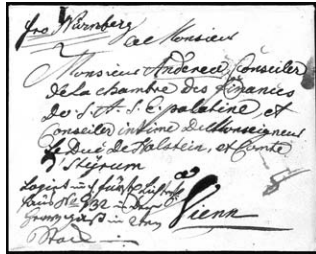 pro Nürnberg
a Monsieur
Monsieur Andereé Conseiler
de la chambre des finances
de S. A. S. E. palatine et
Conseiler intime du Monseigneur
le Duc de Holstein, et Comte
d'Styrum
Logirt in
Haus No 932 in der
in 2ten
à Vienn
Stock